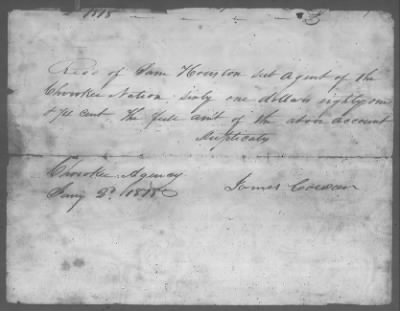 1818
Recd of Sam Houston sub Agent of the
Cherokee Nation, sixty one dollars eighty one
& ¼ cent the full amt of the above account
Duplicate
Cherokee Agency
Jany 2d 1818
James Cowan